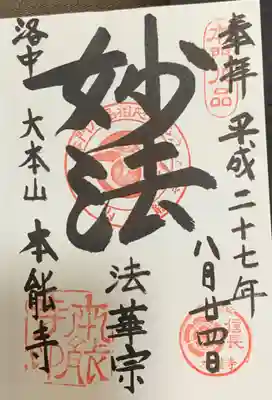 奉拝 平成二十七年
八月廿四日
妙法
法華宗
洛中 大本山 本能寺
信長